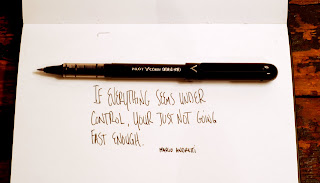 PILOT
IF EVERYTHING SEEMS UNDER
CONTROL, YOUR JUST NOT GOING
FAST ENOUGH.
MARIO ANDRETTI